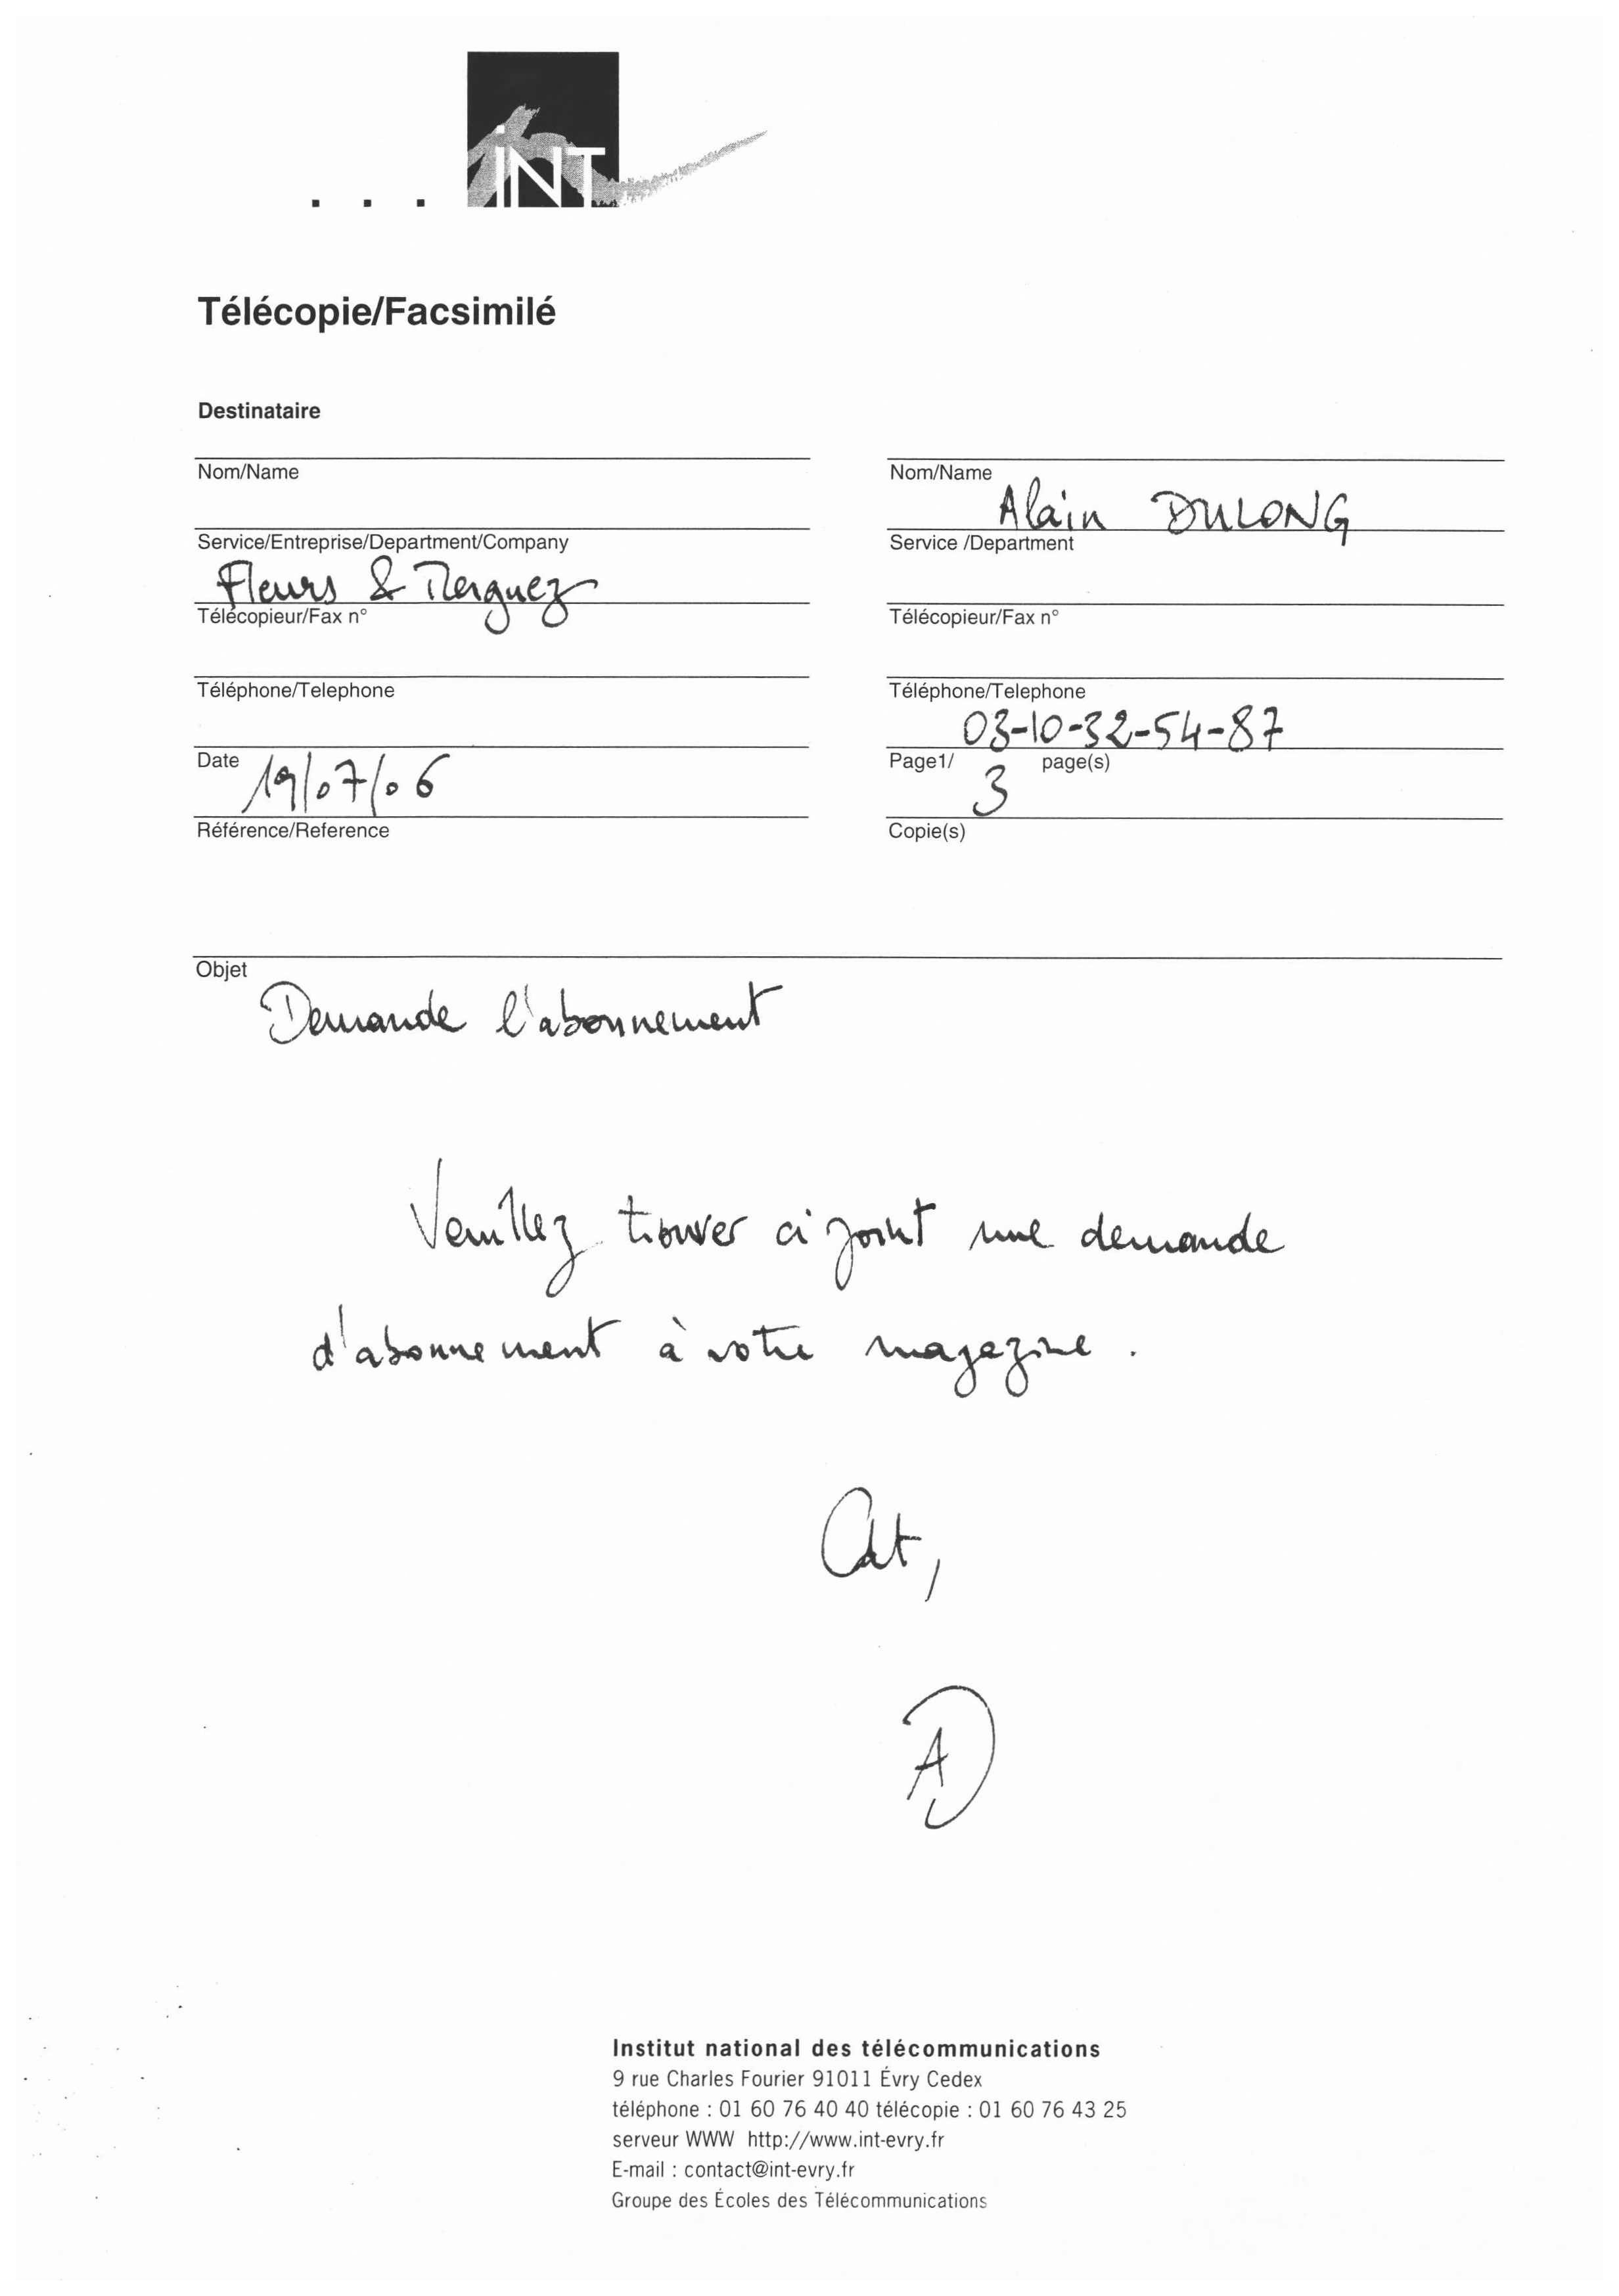 ... iNT
Télécopie/Facsimilé
Destinataire
Nom/Name
Service/Entreprise/Department/Company
Fleurs & Merguez
Télécopieur/Fax n°
Téléphone/Telephone
Date 19/07/06
Référence/Reference
Nom/Name
Alain DULONG
Service /Department
Télécopieur/Fax n°
Téléphone/Telephone
03-10-32-54-87
Page1/ 3 page(s)
Copie(s)
Objet
Demande l'abonnement
Veuillez trouver ci joint une demande
d'abonnement à votre magazine.
Cdt,
AD
Institut national des télécommunications
9 rue Charles Fourier 91011 Évry Cedex
téléphone : 01 60 76 40 40 télécopie : 01 60 76 43 25
serveur WWW http://www.int-evry.fr
E-mail : contact@int-evry.fr
Groupe des Écoles des Télécommunications